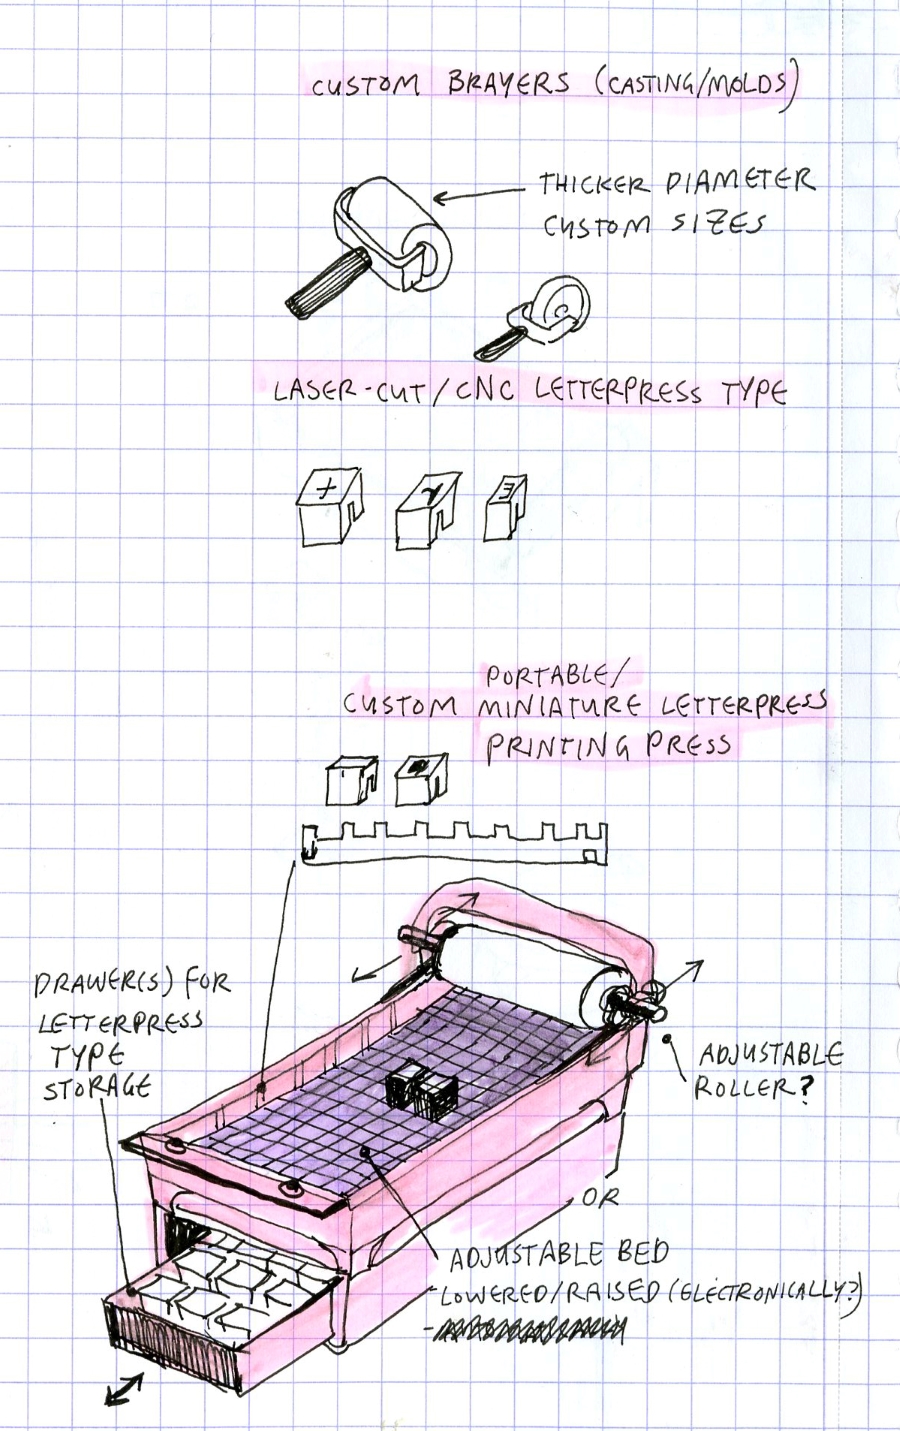 CUSTOM BRAYERS (CASTING/MOLDS)
THICKER DIAMETER
CUSTOM SIZES
LASER-CUT/CNC LETTERPRESS TYPE
PORTABLE/
CUSTOM MINIATURE LETTERPRESS
PRINTING PRESS
DRAWER(S) FOR
LETTERPRESS
TYPE
STORAGE
ADJUSTABLE
ROLLER?
OR
ADJUSTABLE BED
-LOWERED/RAISED (ELECTRONICALLY?)